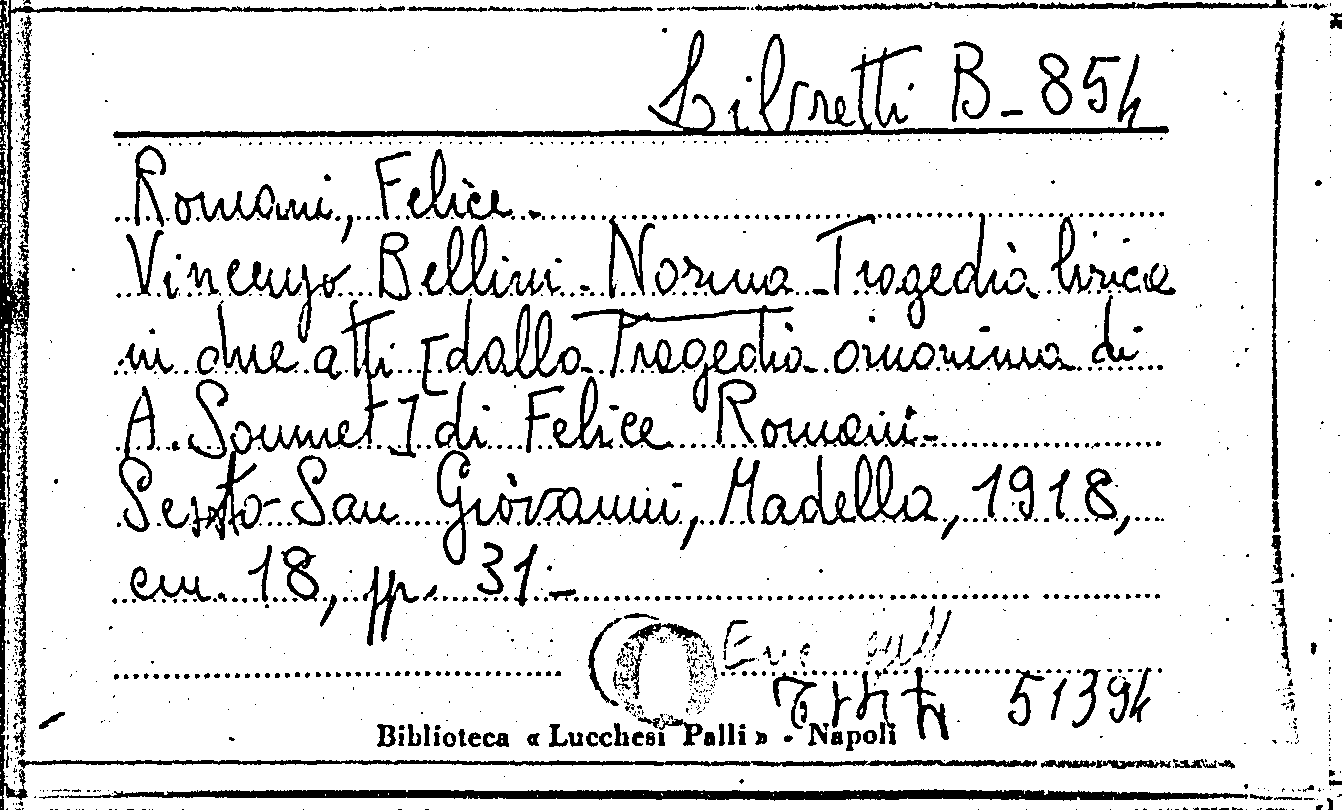 Libretti B-854
Romani, Felice.
Vincenzo Bellini - Norma - Tragedia lirica
in due atti [dalla Tragedia omonima di
A. Soumet] di Felice Romani -
Sesto San Giovanni, Madella, 1918,
cm. 18, pp. 31 -
51394
Biblioteca « Lucchesi Palli » - Napoli